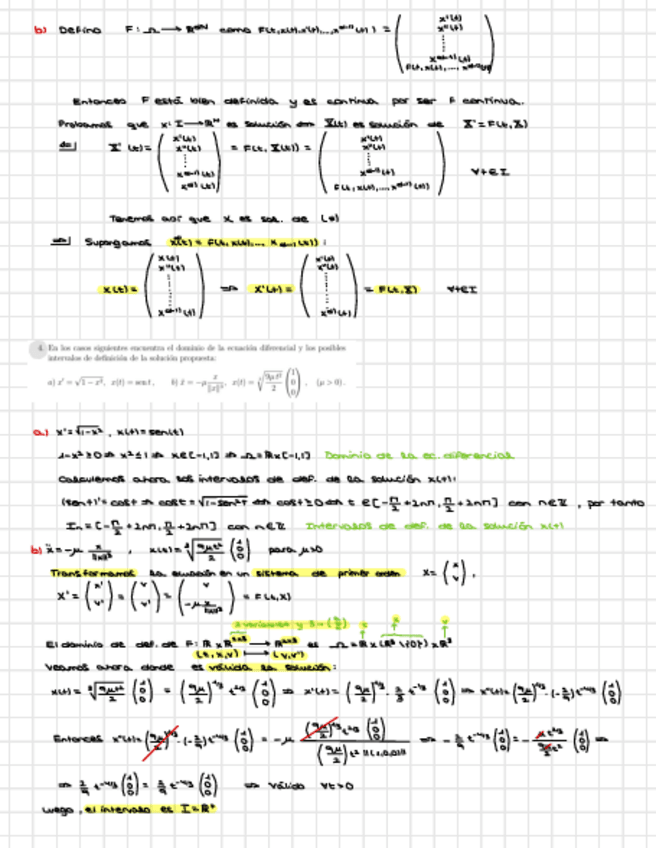 b) Defino F: Ω → como F(t, x(t), x'(t), ..., (t)) = ( x'(t) x''(t) ⋮ F(t, x(t), ..., )
Entonces F está bien definida y es continua por ser F continua.
Probamos que x: I → es solución X(t) es solución de X' = F(t, X)
X'(t) = ( x'(t) x''(t) ⋮ ) = F(t, X(t)) = ( x'(t) x''(t) ⋮ F(t, x(t), ..., (t)) ) ∀t∈I
Tenemos que X es sol. de (*)
⇒ Supongamos = F(t, x(t), ..., (t)) :
X(t) = ( x(t) x'(t) ⋮ (t) ) ⇒ X'(t) = ( x'(t) x''(t) ⋮ (t) ) = F(t, X) ∀t∈I
4. En los casos siguientes encuentra el dominio de la ecuación diferencial y los posibles
intervalos de definición de la solución propuesta:
a) x' = √1-x², x(t) = sen t, b) ẍ = -μ x/‖x‖³, x(t) = ∛(9μt²/2) (1 0 0), (μ > 0).
a) x' = √1-x², x(t) = sen(t)
1-x² ≥ 0 ⇒ x² ≤ 1 ⇒ x∈[-1,1] ⇒ Ω = ℝx[-1,1] Dominio de la ec. diferencial
Calculemos ahora los intervalos de def. de la solución x(t):
(sen t)' = cos t ⇒ cos t = √1-sen²t ⇔ cos t ≥ 0 ⇔ t ∈ [-π/2 + 2πn, π/2 + 2πn] con n∈ℤ, por tanto
Iₙ = [-π/2 + 2πn, π/2 + 2πn] con n∈ℤ Intervalos de def. de la solución x(t)
b) ẍ = -μ x/‖x‖³, x(t) = ∛(9μt²/2) (1 0 0) para μ>0
Transformamos la ecuación en un sistema de primer orden X = (x v),
X' = (x' v') = (v v') = (v -μ x/‖x‖³) = F(t, X)
El dominio de def. de F: ℝ x → es Ω = ℝ x (ℝ³ \ {0}) x ℝ³
(t, x, v) ↦ (v, v')
Veamos ahora donde es válida la solución:
x(t) = ∛(9μt²/2) (1 0 0) = (9μ/2)^1/3 t^2/3 (1 0 0) ⇒ x'(t) = (9μ/2)^1/3 · 2/3 t^-1/3 (1 0 0) ⇒ x''(t) = (9μ/2)^1/3 · (-2/9) t^-4/3 (1 0 0)
Entonces x''(t) = (9μ/2)^1/3 · (-2/9) t^-4/3 (1 0 0) = -μ (9μ/2)^1/3 t^2/3 (1 0 0) / (9μ/2) t² ‖(1,0,0)‖ ⇒ - 2/9 t^-4/3 (1 0 0) = - μ t^2/3 / 9μ/2 t² ⇒
⇒ 2/9 t^-4/3 (1 0 0) = 2/9 t^-4/3 (1 0 0) ⇒ válido ∀t>0
Luego, el intervalo es I = ℝ⁺